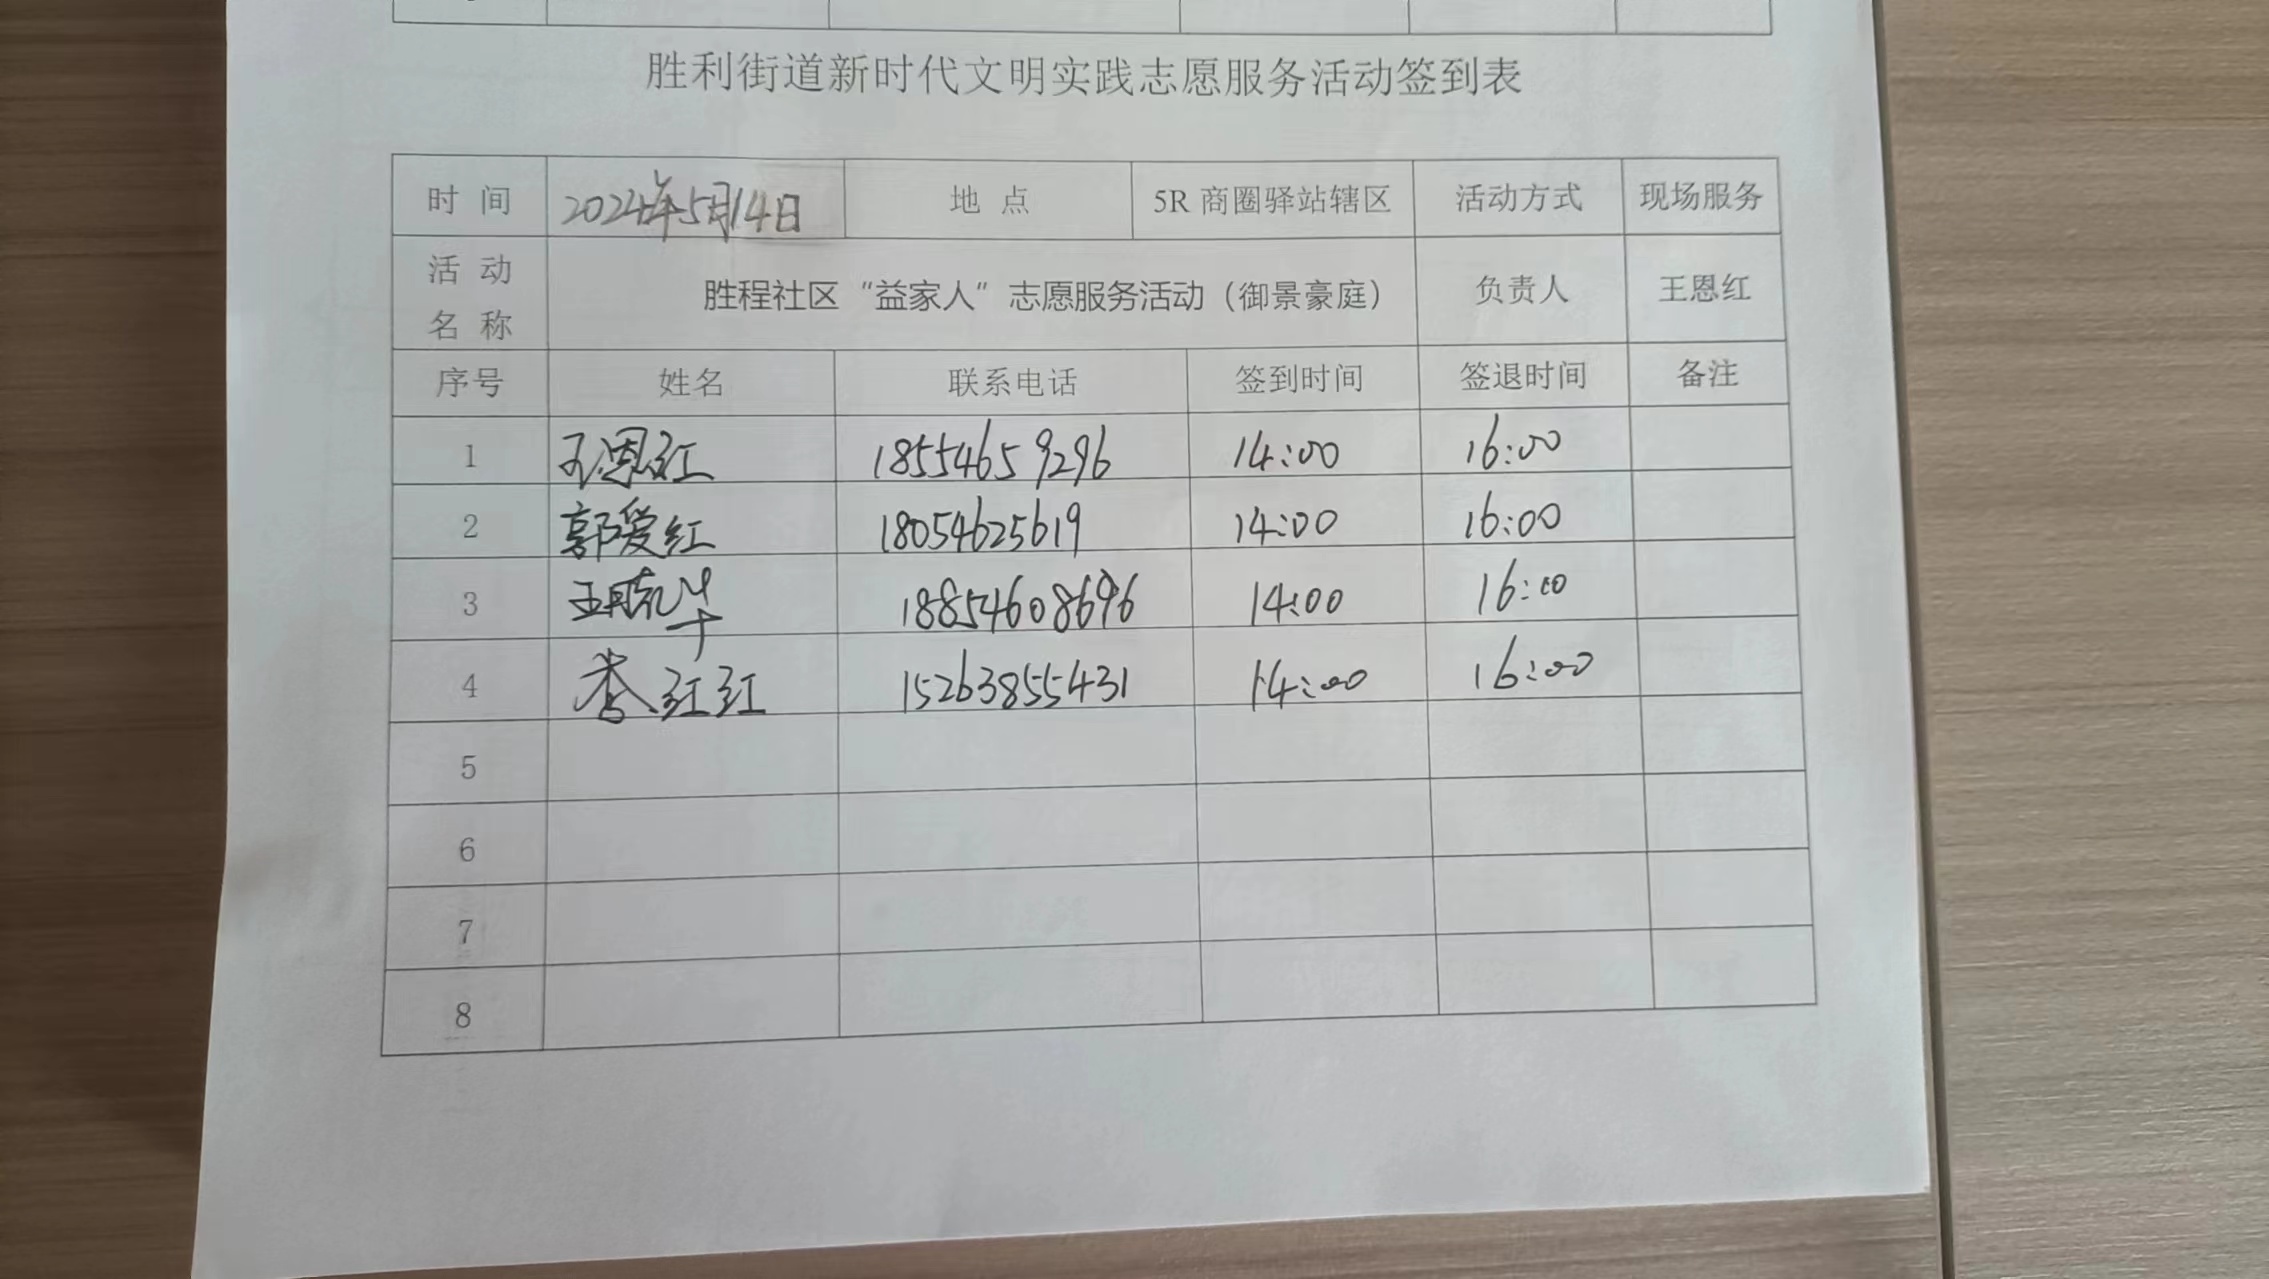 胜利街道新时代文明实践志愿服务活动签到表
时 间 2024年5月14日 地 点 5R 商圈驿站辖区 活动方式 现场服务
活 动
名 称 胜程社区“益家人”志愿服务活动（御景豪庭） 负责人 王恩红
序号 姓名 联系电话 签到时间 签退时间 备注
1 王恩红 18554659296 14:00 16:00
2 郭爱红 18054625619 14:00 16:00
3 18854608696 14:00 16:00
4 李红红 15263855431 14:00 16:00
5
6
7
8